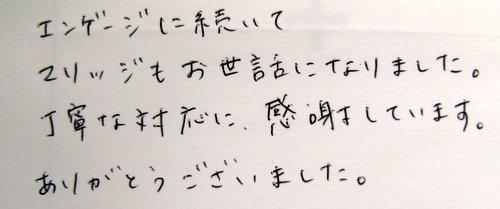 エンゲージに続いて
マリッジもお世話になりました。
丁寧な対応に、感謝しています。
ありがとうございました。